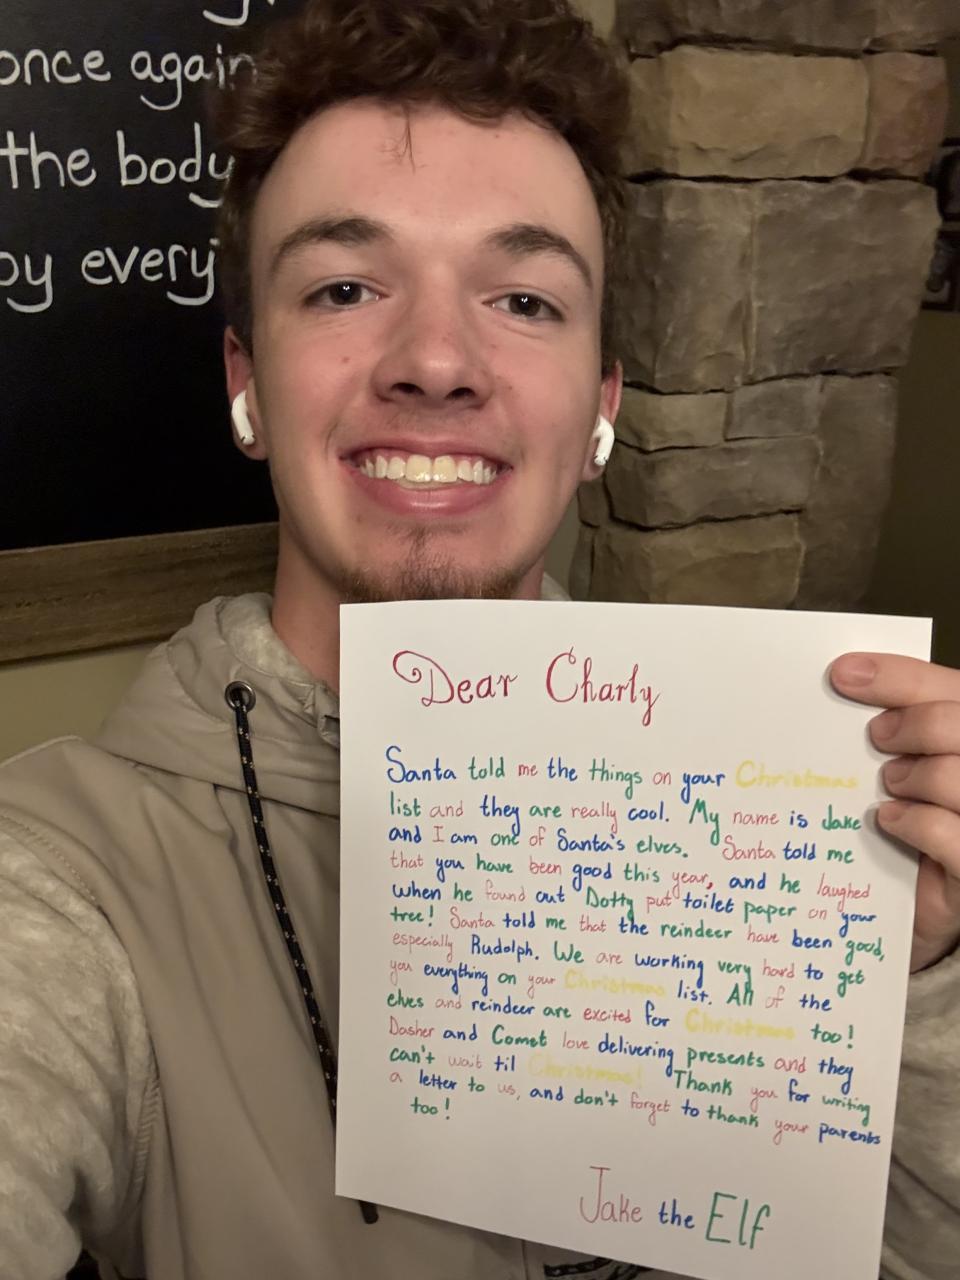 once again
the body
by every
Dear Charly
Santa told me the things on your Christmas
list and they are really cool. My name is Jake
and I am one of Santa's elves. Santa told me
that you have been good this year, and he laughed
when he found out Dotty put toilet paper on your
tree! Santa told me that the reindeer have been good,
especially Rudolph. We are working very hard to get
you everything on your Christmas list. All of the
elves and reindeer are excited for Christmas too!
Dasher and Comet love delivering presents and they
can't wait til Christmas! Thank you for writing
a letter to us, and don't forget to thank your parents
too!
Jake the Elf